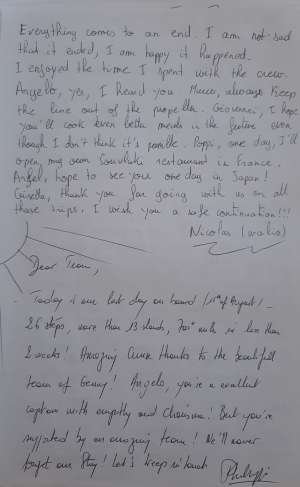 Everything comes to an end. I am not sad
that it ended, I am happy it happened.
I enjoyed the time I spent with the crew.
Angelo, yes, I heard you Marco, always keep
the line out of the propeller. Giovanni, I hope
you'll cook even better meals in the future even
though I don't think it's possible. one day, I'll
open my own Souvlaki restaurant in France.
hope to see you one day in Japan!
thank you for going with us on all
those trips. I wish you a safe continuation!!!
Nicolas
Dear Team,
Today is our last day on board (11th of August) -
26 stops, more than 13 islands, miles in less than
2 weeks! Amazing Cruise thanks to the beautiful
team of Genny! Angelo, you're a excellent
captain with empathy and charisma! But you're
supported by an amazing team! We'll never
forget our Stay! Let's keep in touch
Philippe